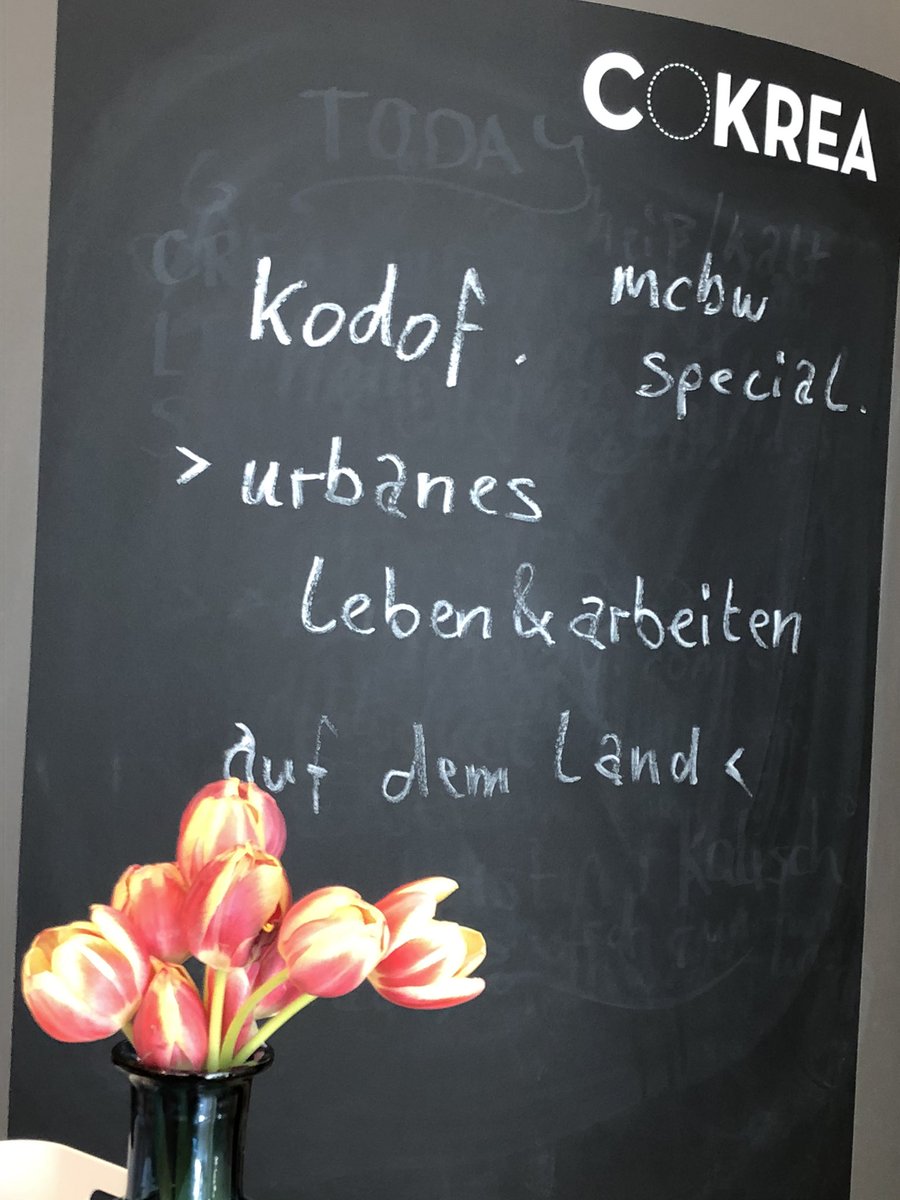 COKREA
TODAY
kodof.
mcbw
special.
> urbanes
leben & arbeiten
auf dem Land <